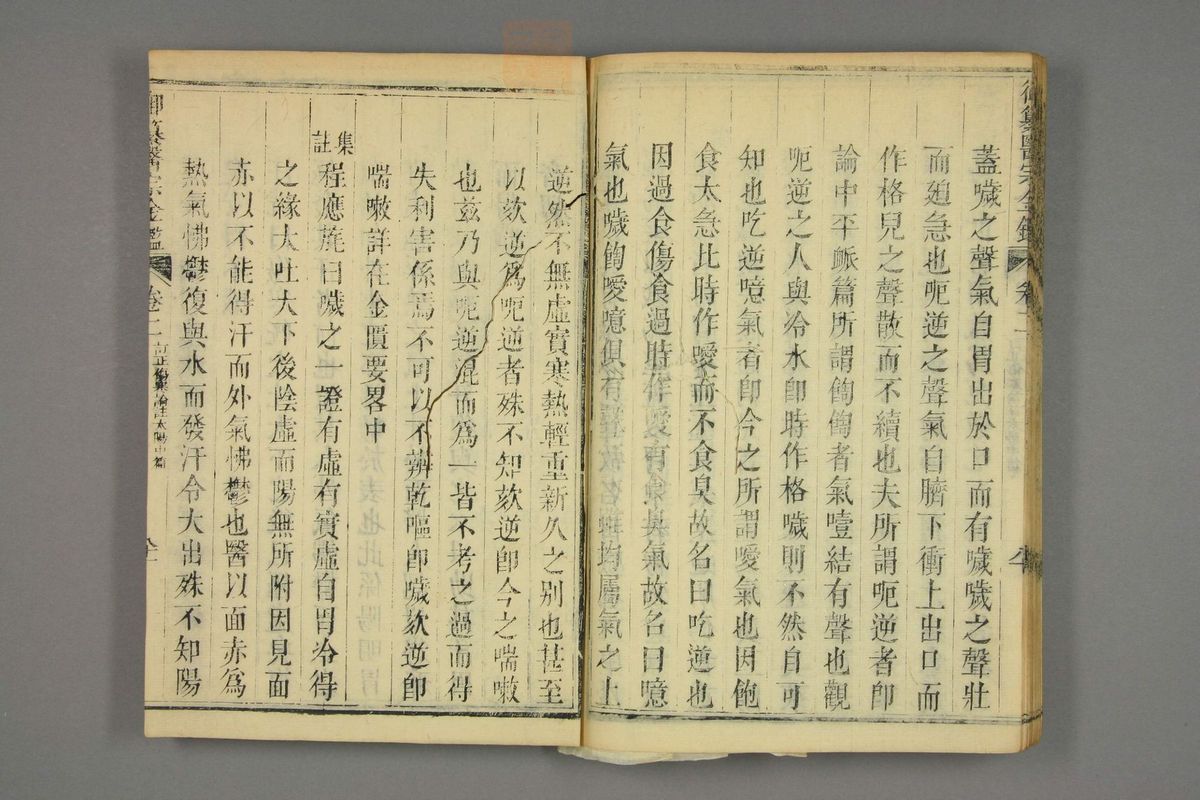 蓋噦之聲氣自胃出於口而有噦噦之聲壯
而廹急也呃逆之聲氣自臍下衝上出口而
作格兒之聲散而不續也夫所謂呃逆者卽
論中平脈篇所謂䭇䭇者氣噎結有聲也觀
呃逆之人與冷水卽時作格噦則不然自可
知也吃逆噫氣者卽今之所謂噯氣也因飽
食太急比時作噯而不食臭故名曰吃逆也
因過食傷食過時作噯有食臭氣故名曰噫
氣也噦䭇噯噫俱有聲故名雖均屬氣之上
逆然不無虛實寒熱輕重新久之别也甚至
以欬逆爲呃逆者殊不知欬逆卽今之喘嗽
也茲乃與呃逆混而爲一皆不考之過而得
失利害係焉不可以不辨乾嘔卽噦欬逆卽
喘嗽詳在金匱要畧中
集註
程應旄曰噦之一證有虛有實虛自胃冷得
之緣大吐大下後陰虛而陽無所附因見面
赤以不能得汗而外氣怫鬱也醫以面赤爲
熱氣怫鬱復與水而發汗令大出殊不知陽
御纂醫宗金鑑
卷二
訂正傷寒論註太陽中篇